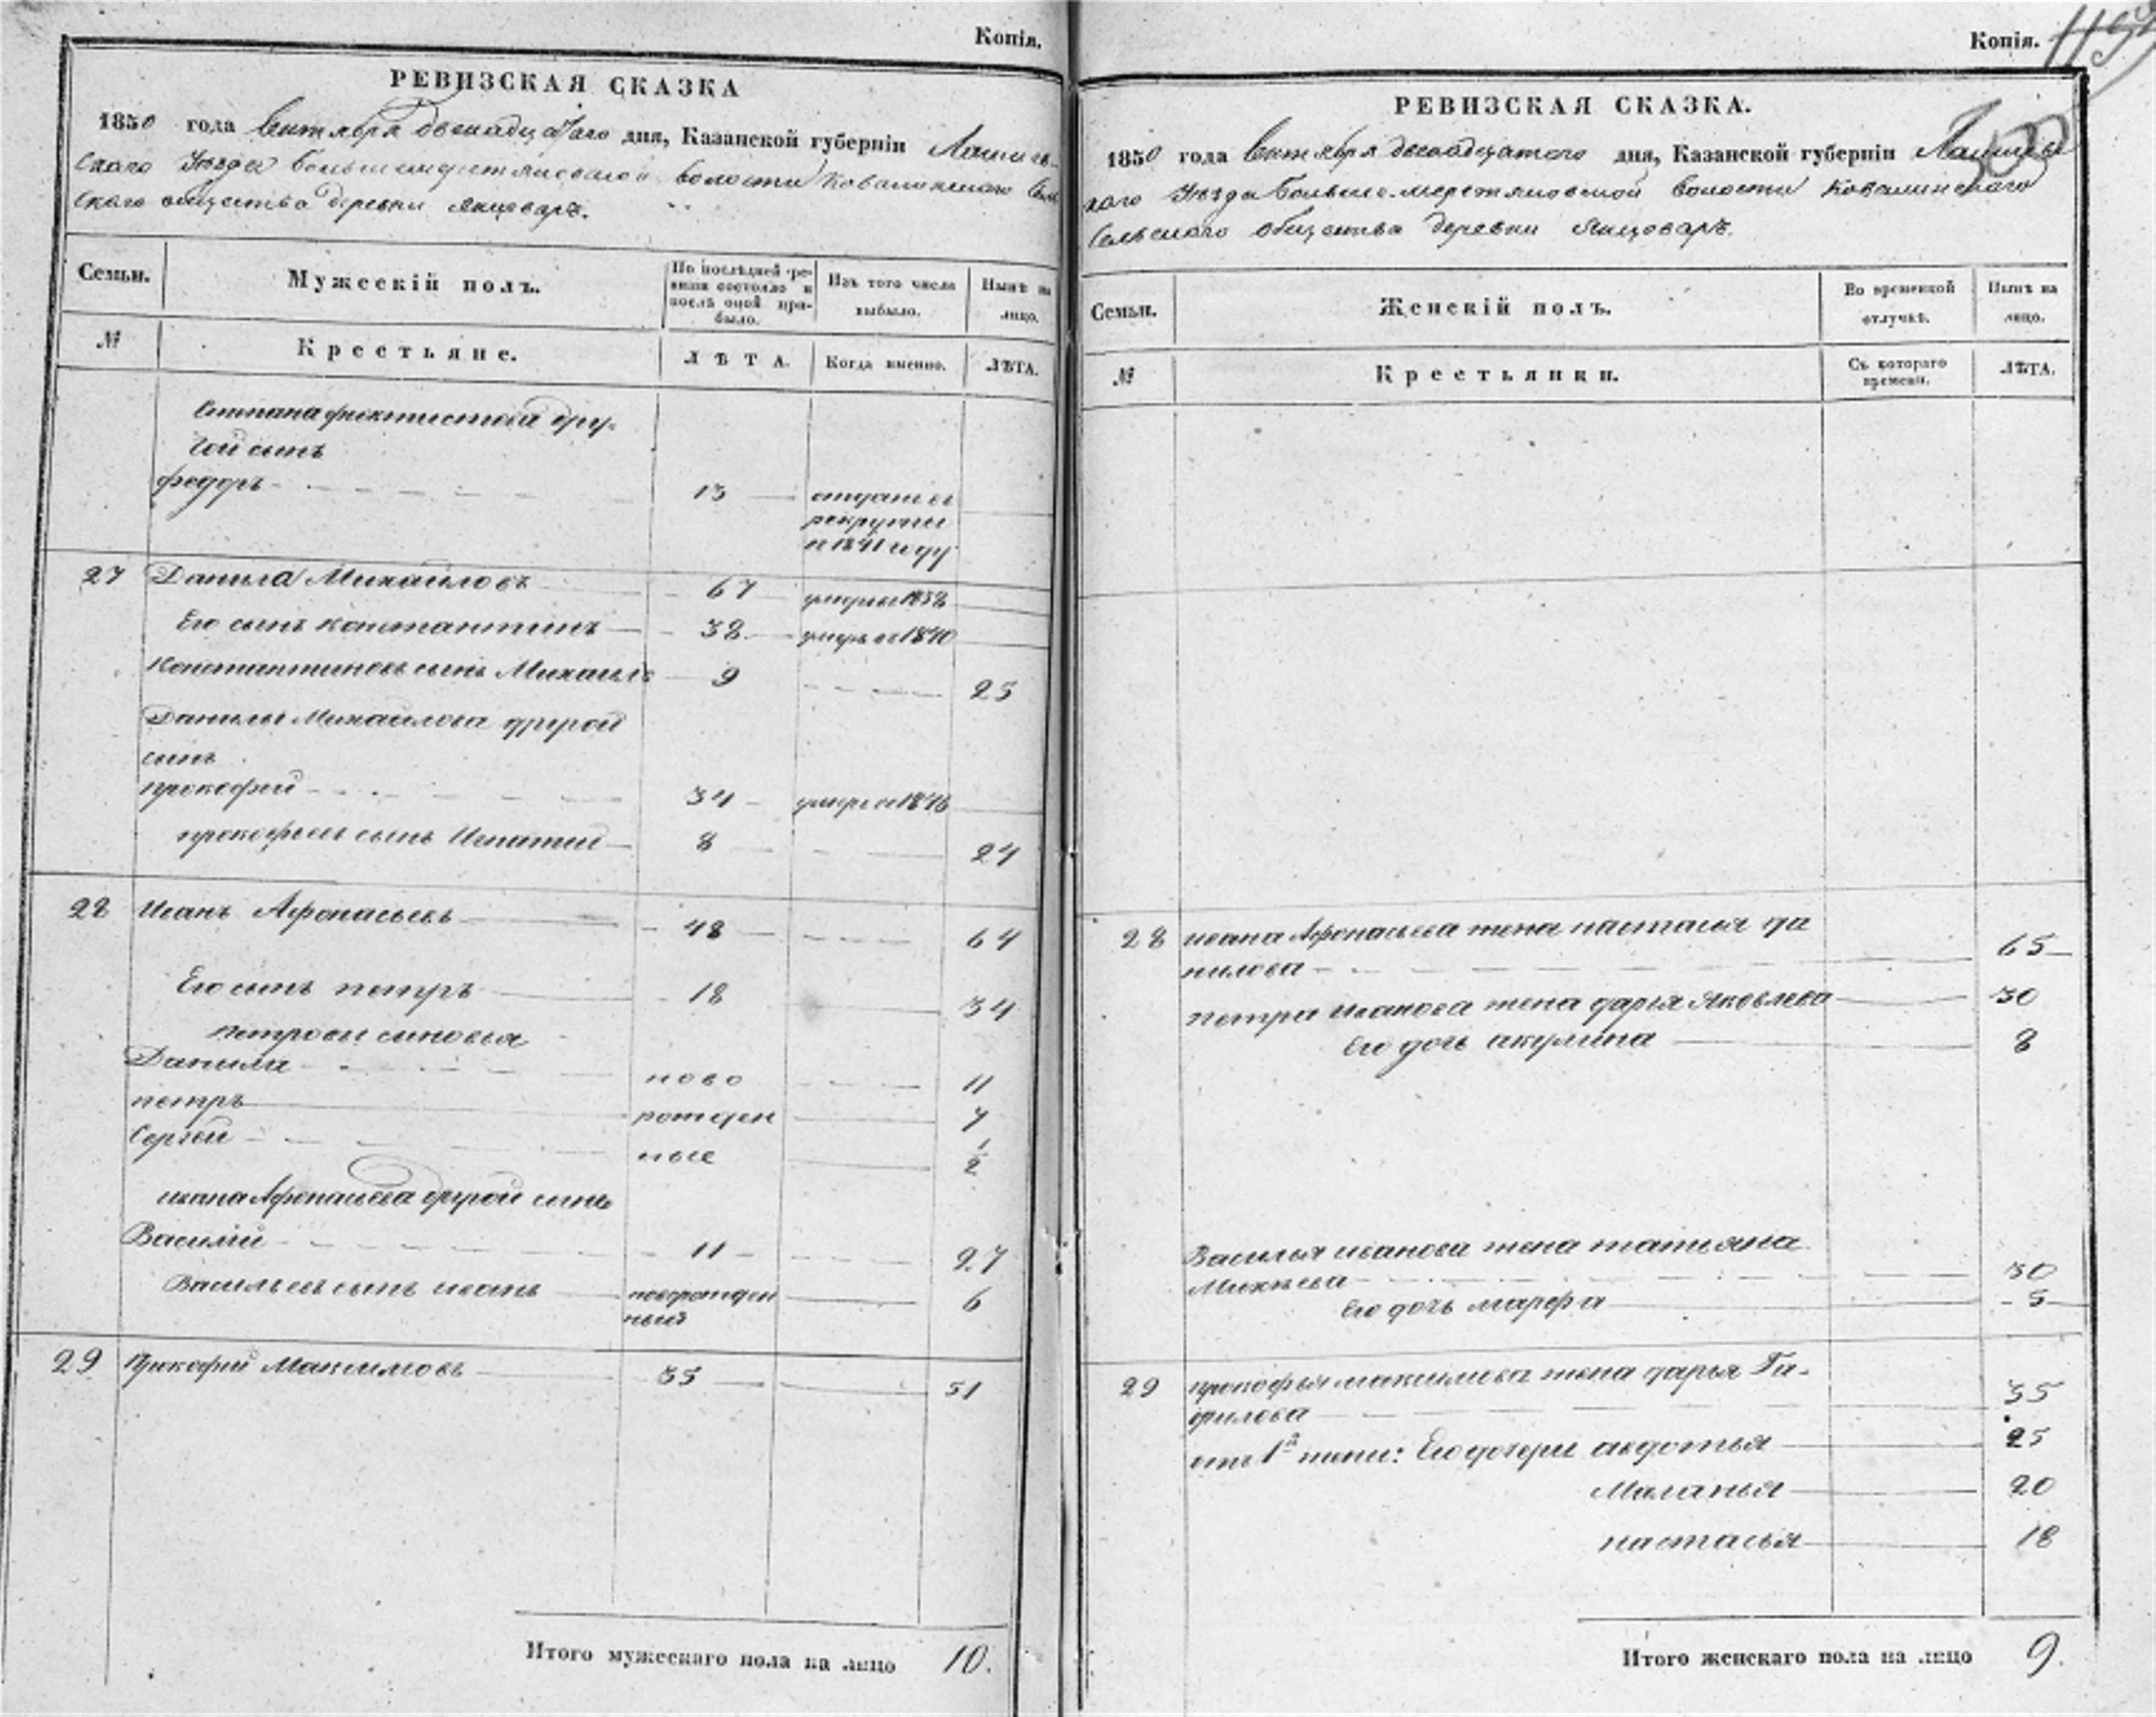 Копія.
РЕВИЗСКАЯ СКАЗКА
1850 года Сентября двенадцатаго дня, Казанской губерніи Лаишев-
скаго Уезда волости Ковалинскаго Сель
скаго общества деревни Янцоваръ.
Семьи.
Мужескій полъ.
По послѣдней ре-
визіи состояло и
послѣ оной при-
было.
Изъ того числа
выбыло.
Нынѣ на
лицо.
№
Крестьяне.
ЛѢТА.
Когда именно.
ЛѢТА.
Степана феоктистова дру-
гой сынъ
федоръ 13 отданъ в
рекруты
в 1841 году
27 Данила Михайловъ 67 умеръ в 1838
Его сынъ константинъ 38 умеръ в 1840
Константиновъ сынъ Михаилъ 9 25
Данилы Михайлова другой
сынъ
прокофий 34 умеръ в 1846
прокофьевъ сынъ Игнатий 8 24
28 Иванъ Афонасьевъ 48 64
Его сынъ петръ 18 34
петровы сыновья
Данила ново 11
петръ рожден 7
Сергей ные 1/2
ивана Афонасьева другой сынъ
Василий 11 27
Васильевъ сынъ иванъ новорожден 6
ный
29 Прокофий Максимовъ 35 51
Итого мужескаго пола на лицо 10.
Копія.
РЕВИЗСКАЯ СКАЗКА.
1850 года Сентября двенадцатого дня, Казанской губерніи Лаишевс
каго Уезда волости Ковалинскаго
Сельскаго общества деревни Янцоваръ.
Семьи.
Женскій полъ.
Во временной
отлучкѣ.
Нынѣ на
лицо.
№
Крестьянки.
Съ котораго
времени.
ЛѢТА.
28 ивана Афонасьева жена настасья да
нилова 65
петра иванова жена дарья Яковлева 30
Его дочь акулина 8
Василья иванова жена татьяна
Михеева 30
Его дочь марфа 5
29 прокофья максимова жена дарья Га-
врилова 35
отъ 1й жены: Его дочери авдотья 25
Маланья 20
настасья 18
Итого женскаго пола на лицо 9.